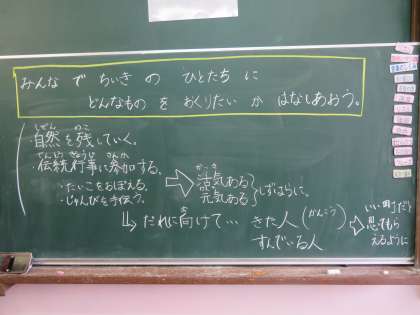 みんなで ちいきの ひとたちに
どんなものを おくりたいか はなしあおう。
しぜん のこ
・自然を残していく。
でんとうぎょうじ さんか
・伝統行事に参加する。
・たいこをおぼえる。
・じゅんびを手伝う。
かっき
活気ある
元気ある
しずはらに。
む
だれに向けて…
きた人(かんこう)
すんでいる人
いい町だと
思てもら
えるように